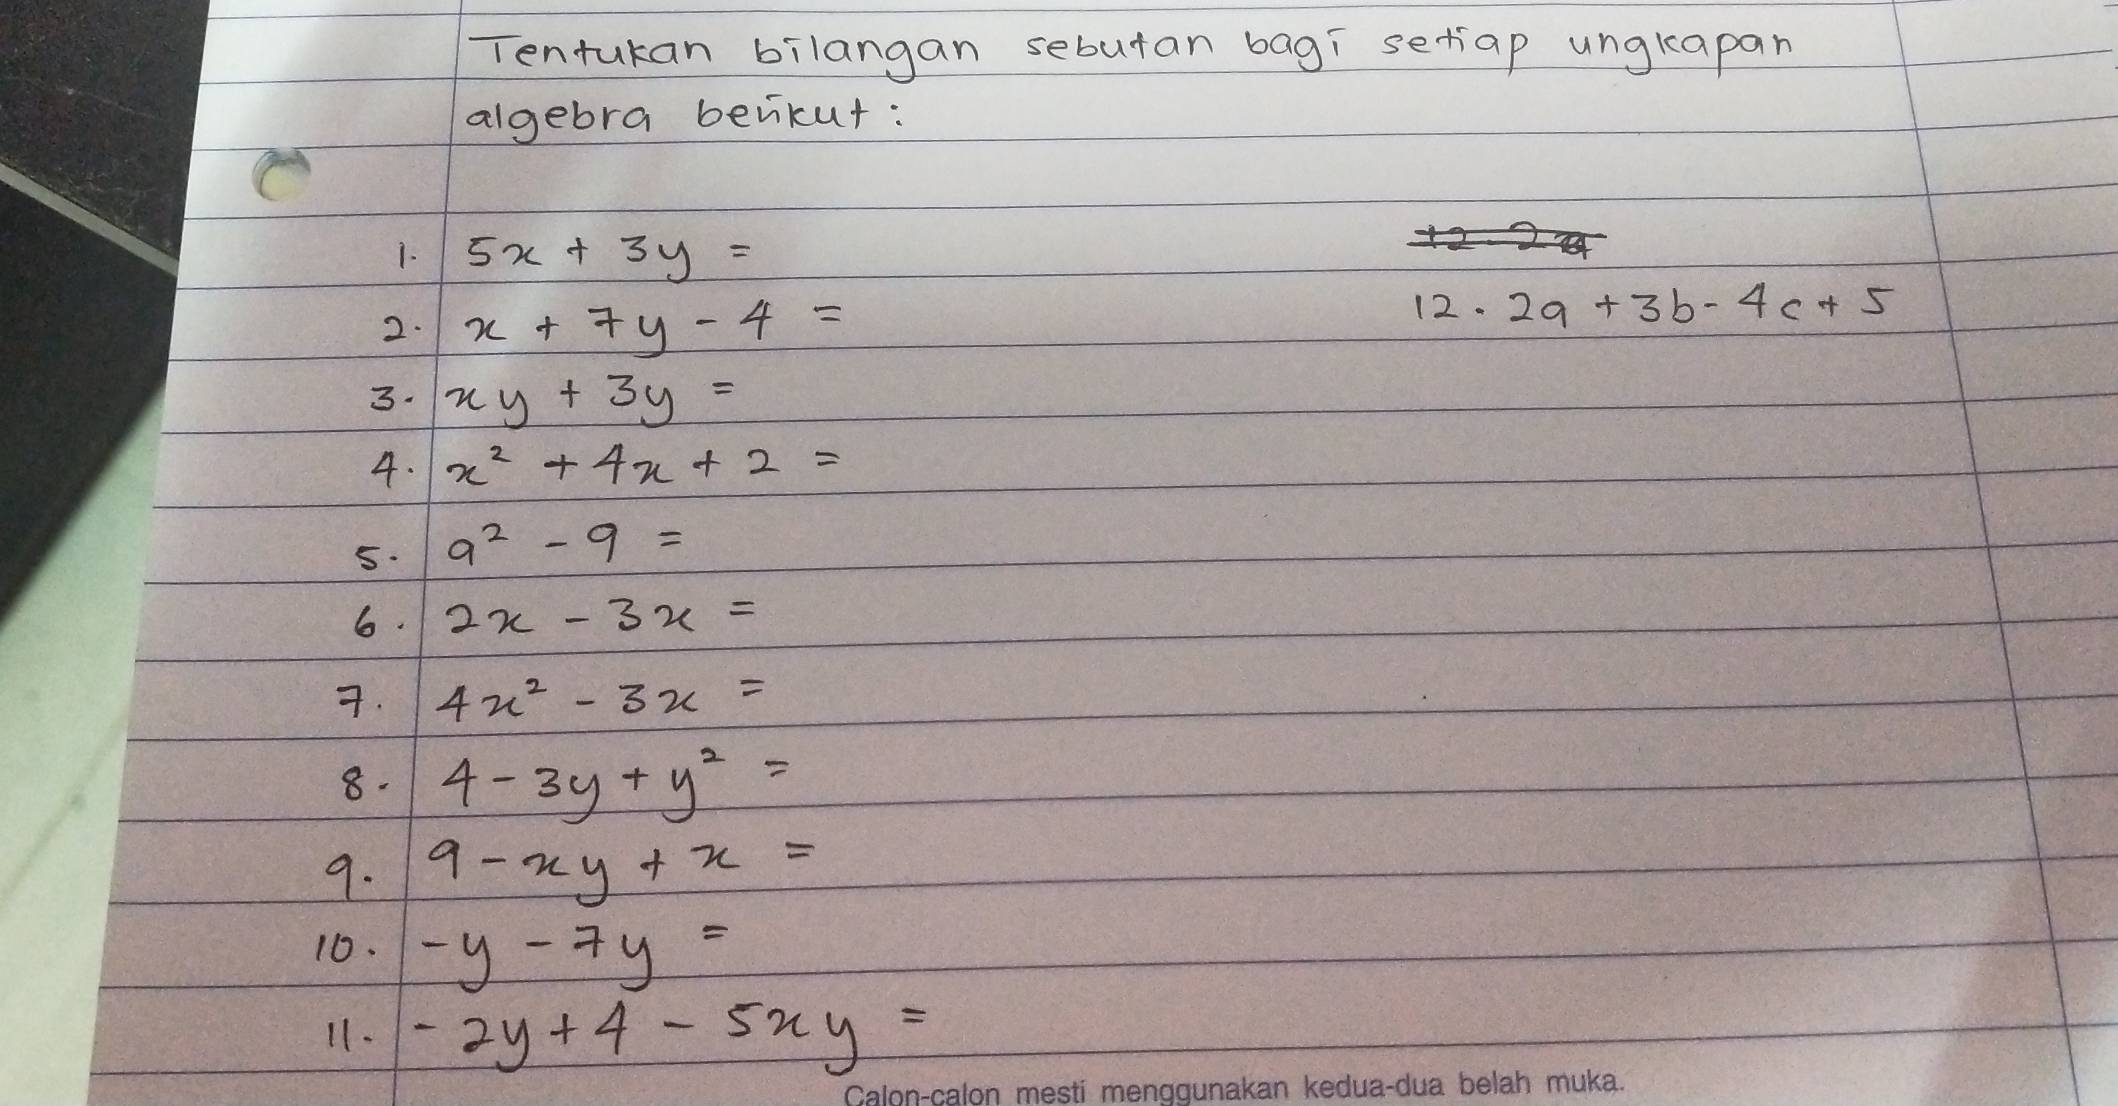 Tentukan bilangan sebutan bagi setiap ungkapan
algebra berikut :
1. 5x + 3y =
2. x + 7y - 4 =
3. xy + 3y =
4. x² + 4x + 2 =
5. a² - 9 =
6. 2x - 3x =
7. 4x² - 3x =
8. 4 - 3y + y² =
9. 9 - xy + x =
10. -y - 7y =
11. -2y + 4 - 5xy =
12. 2a + 3b - 4c + 5
Calon-calon mesti menggunakan kedua-dua belah muka.